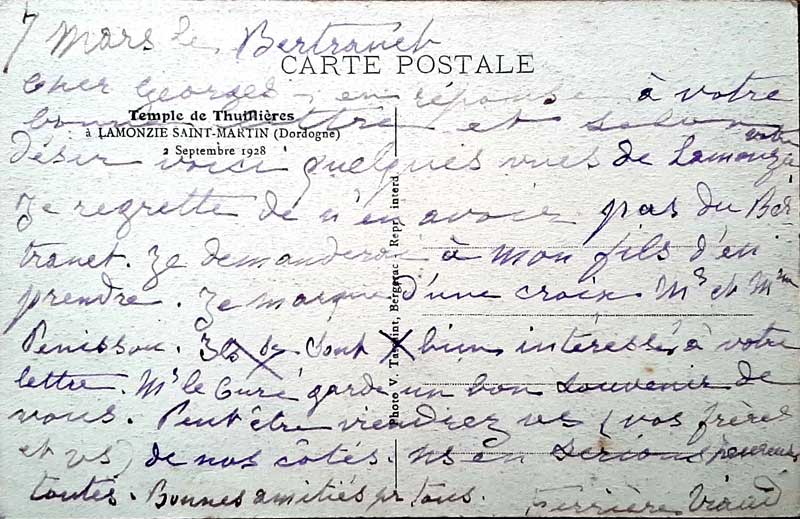 7 Mars le Bertranet
CARTE POSTALE
Cher Georges, en réponse à votre
Temple de Thuillières
à LAMONZIE SAINT-MARTIN (Dordogne)
2 Septembre 1928
bonne lettre et selon votre
désir voici quelques vues de Lamonzie
Je regrette de n'en avoir pas du Ber-
tranet. Je demanderai à mon fils d'en
prendre. Je marque d'une croix Mr et Mme
Penisson. Ils se sont bien intéressés à votre
lettre. Mr le Curé garde un bon souvenir de
vous. Peut être viendrez vs (vos frères
et vs) de nos côtés. ns en serions heureux
toutes. Bonnes amitiés pr tous.
Ferrière Viaud
Photo V. Bergerac Repr. interd.